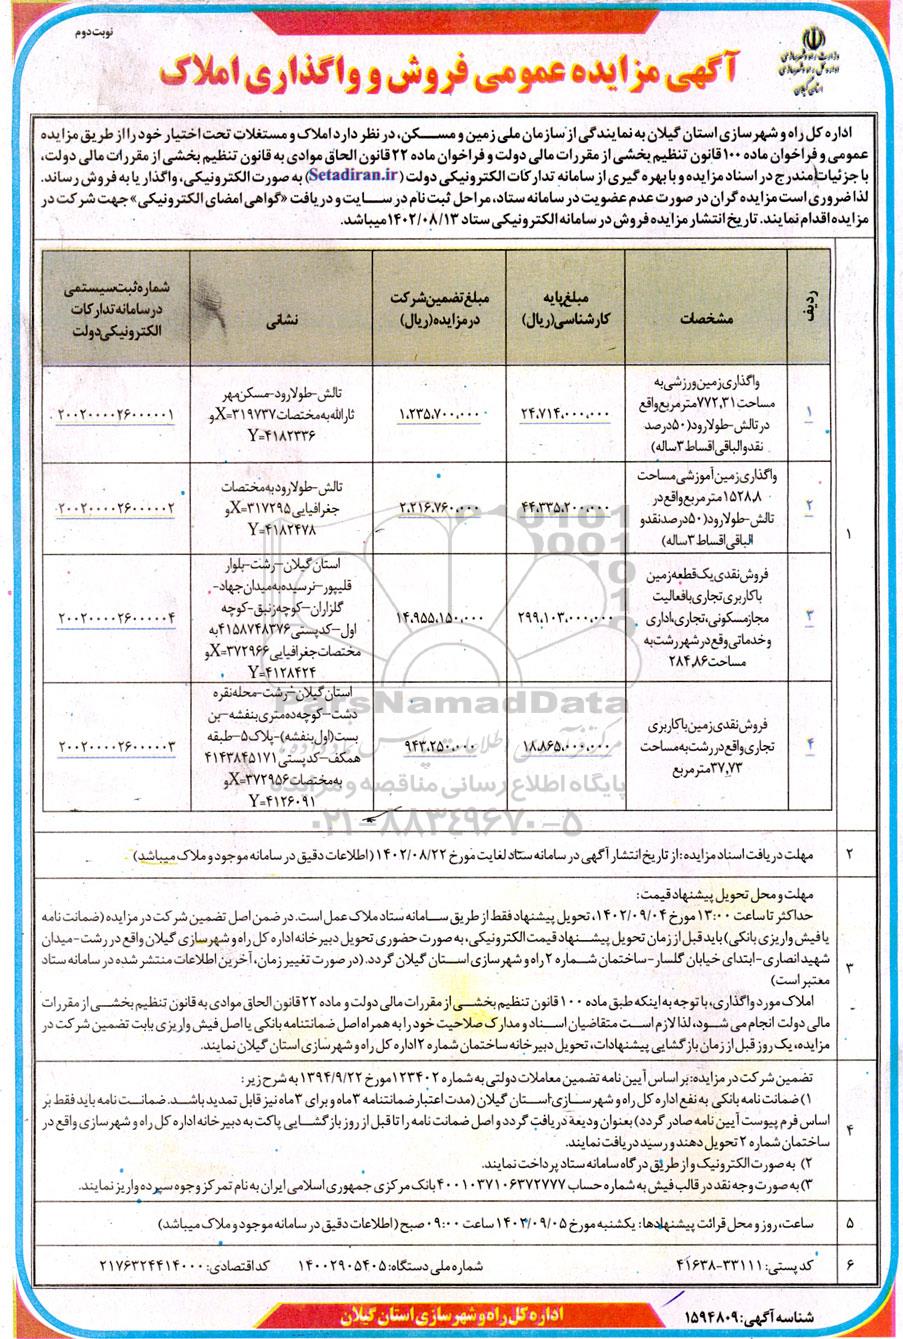 نوبت دوم
وزارت راه و شهرسازی
اداره کل راه و شهرسازی
استان گیلان
آگهی مزایده عمومی فروش و واگذاری املاک
اداره کل راه و شهرسازی استان گیلان به نمایندگی از سازمان ملی زمین و مسکن، در نظر دارد املاک و مستغلات تحت اختیار خود را از طریق مزایده
عمومی و فراخوان ماده ۱۰۰ قانون تنظیم بخشی از مقررات مالی دولت و فراخوان ماده ۲۲ قانون الحاق موادی به قانون تنظیم بخشی از مقررات مالی دولت،
با جزئیات مندرج در اسناد مزایده و با بهره گیری از سامانه تدارکات الکترونیکی دولت (Setadiran.ir) به صورت الکترونیکی، واگذار یا به فروش رساند.
لذا ضروری است مزایده گران در صورت عدم عضویت در سامانه ستاد، مراحل ثبت نام در سایت و دریافت «گواهی امضای الکترونیکی» جهت شرکت در
مزایده اقدام نمایند. تاریخ انتشار مزایده فروش در سامانه الکترونیکی ستاد ۱۴۰۲/۰۸/۱۳ میباشد.
۱
ردیف
مشخصات
مبلغ پایه
کارشناسی (ریال)
مبلغ تضمین شرکت
در مزایده (ریال)
نشانی
شماره ثبت سیستمی
در سامانه تدارکات
الکترونیکی دولت
۱
واگذاری زمین ورزشی به
مساحت ۷۷۲،۳۱ متر مربع واقع
در تالش-طولارود (۵۰ درصد
نقد و الباقی اقساط ۳ ساله)
۲۴،۷۱۴،۰۰۰،۰۰۰
۱،۲۳۵،۷۰۰،۰۰۰
تالش-طولارود-مسکن مهر
ثارالله به مختصات X=۳۱۹۷۳۷ و
Y=۴۱۸۲۳۳۶
۲۰۰۲۰۰۰۰۲۶۰۰۰۰۰۱
۲
واگذاری زمین آموزشی مساحت
۱۵۲۸،۸ متر مربع واقع در
تالش-طولارود (۵۰ درصد نقد و
الباقی اقساط ۳ ساله)
۴۴،۳۳۵،۲۰۰،۰۰۰
۲،۲۱۶،۷۶۰،۰۰۰
تالش-طولارود به مختصات
جغرافیایی X=۳۱۷۲۹۵ و
Y=۴۱۸۲۴۷۸
۲۰۰۲۰۰۰۰۲۶۰۰۰۰۰۲
۳
فروش نقدی یک قطعه زمین
با کاربری تجاری با فعالیت
مجاز مسکونی، تجاری، اداری
و خدماتی وقع در شهر رشت به
مساحت ۲۸۴،۸۶
۲۹۹،۱۰۳،۰۰۰،۰۰۰
۱۴،۹۵۵،۱۵۰،۰۰۰
استان گیلان-رشت-بلوار
قلیپور-نرسیده به میدان جهاد-
گلزاران-کوچه زنبق-کوچه
اول-کدپستی ۴۱۵۸۷۴۸۳۷۶ به
مختصات جغرافیایی X=۳۷۲۹۶۶ و
Y=۴۱۲۸۴۲۴
۲۰۰۲۰۰۰۰۲۶۰۰۰۰۰۴
۴
فروش نقدی زمین با کاربری
تجاری واقع در رشت به مساحت
۳۷،۷۳ متر مربع
۱۸،۸۶۵،۰۰۰،۰۰۰
۹۴۳،۲۵۰،۰۰۰
استان گیلان-رشت-محله نقره
دشت-کوچه ده متری بنفشه-بن
بست (اول بنفشه)-پلاک ۵-طبقه
همکف-کدپستی ۴۱۴۳۸۴۵۱۷۱
به مختصات X=۳۷۲۹۵۶ و
Y=۴۱۲۶۰۹۱
۲۰۰۲۰۰۰۰۲۶۰۰۰۰۰۳
ParsNamadData
پایگاه اطلاع رسانی مناقصه و مزایده
۰۲۱-۸۸۳۴۹۶۷۰-۵
۲
مهلت دریافت اسناد مزایده: از تاریخ انتشار آگهی در سامانه ستاد لغایت مورخ ۱۴۰۲/۰۸/۲۲ (اطلاعات دقیق در سامانه موجود و ملاک میباشد)
۳
مهلت و محل تحویل پیشنهاد قیمت:
حداکثر تا ساعت ۱۳:۰۰ مورخ ۱۴۰۲/۰۹/۰۴، تحویل پیشنهاد فقط از طریق سامانه ستاد ملاک عمل است. در ضمن اصل تضمین شرکت در مزایده (ضمانت نامه
یا فیش واریزی بانکی) باید قبل از زمان تحویل پیشنهاد قیمت الکترونیکی، به صورت حضوری تحویل دبیرخانه اداره کل راه و شهرسازی گیلان واقع در رشت-میدان
شهید انصاری-ابتدای خیابان گلسار-ساختمان شماره ۲ راه و شهرسازی استان گیلان گردد. (در صورت تغییر زمان، آخرین اطلاعات منتشر شده در سامانه ستاد
معتبر است)
املاک مورد واگذاری، با توجه به اینکه طبق ماده ۱۰۰ قانون تنظیم بخشی از مقررات مالی دولت و ماده ۲۲ قانون الحاق موادی به قانون تنظیم بخشی از مقررات
مالی دولت انجام می شود، لذا لازم است متقاضیان اسناد و مدارک صلاحیت خود را به همراه اصل ضمانتنامه بانکی یا اصل فیش واریزی بابت تضمین شرکت در
مزایده، یک روز قبل از زمان بازگشایی پیشنهادات، تحویل دبیرخانه ساختمان شماره ۲ اداره کل راه و شهرسازی استان گیلان نمایند.
۴
تضمین شرکت در مزایده: بر اساس آیین نامه تضمین معاملات دولتی به شماره ۱۲۳۴۰۲ مورخ ۱۳۹۴/۹/۲۲ به شرح زیر:
۱) ضمانت نامه بانکی به نفع اداره کل راه و شهرسازی استان گیلان (مدت اعتبار ضمانتنامه ۳ ماه و برای ۳ ماه نیز قابل تمدید باشد. ضمانت نامه باید فقط بر
اساس فرم پیوست آیین نامه صادر گردد) بعنوان ودیعه دریافت گردد و اصل ضمانت نامه را تا قبل از روز بازگشایی پاکت به دبیرخانه اداره کل راه و شهرسازی واقع در
ساختمان شماره ۲ تحویل دهند و رسید دریافت نمایند.
۲) به صورت الکترونیک و از طریق درگاه سامانه ستاد پرداخت نمایند.
۳) به صورت وجه نقد در قالب فیش به شماره حساب ۴۰۰۱۰۳۷۱۰۶۳۷۲۷۷۷ بانک مرکزی جمهوری اسلامی ایران به نام تمرکز وجوه سپرده واریز نمایند.
۵
ساعت، روز و محل قرائت پیشنهادها: یکشنبه مورخ ۱۴۰۲/۰۹/۰۵ ساعت ۰۹:۰۰ صبح (اطلاعات دقیق در سامانه موجود و ملاک میباشد)
۶
کد پستی: ۳۳۱۱۱-۴۱۶۳۸
شماره ملی دستگاه: ۱۴۰۰۲۹۰۵۴۰۵
کد اقتصادی: ۲۱۷۶۳۲۴۴۱۴۰۰۰
شناسه آگهی: ۱۵۹۴۸۰۹
اداره کل راه و شهرسازی استان گیلان